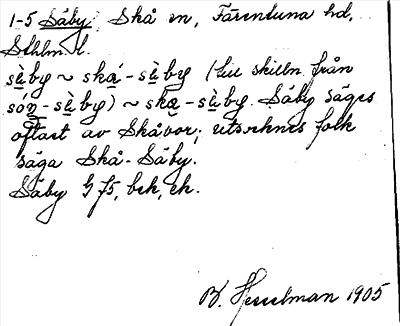 1-5 Säby Skå sn, Färentuna hd,
Sthlms l.
sè̱by ~ ska̱´-sè̱by (till skilln. från
són-sè̱by) ~ ska̱-sè̱by. Säby säges
oftast av Skåbor; utsocknes folk
säga Skå-Säby.
Säby G 75, bek, ek.
B. Hesselman 1905